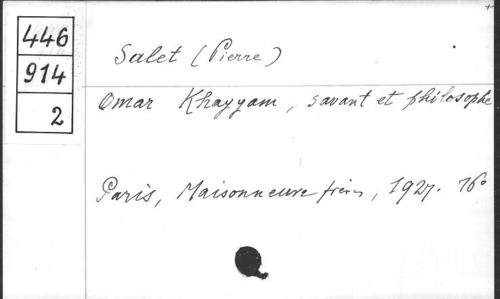 446
914
2
Salet (Pierre)
Omar Khayyam, savant et philosophe
Paris, Maisonneuve frères, 1927. 16º